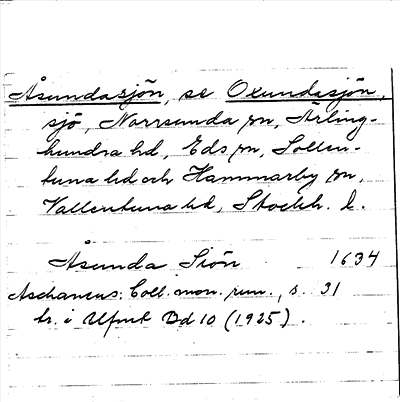 Åsundasjön, se Oxundasjön,
sjö, Norrsunda sn, Ärling-
hundra hd, Eds sn, Sollen-
tuna hd och Hammarby sn,
Vallentuna hd, Stockh. l.
Åsunda Siön 1634
Aschaneus: Coll. mon. run., s. 31
tr. i Ufmt Bd 10 (1925).